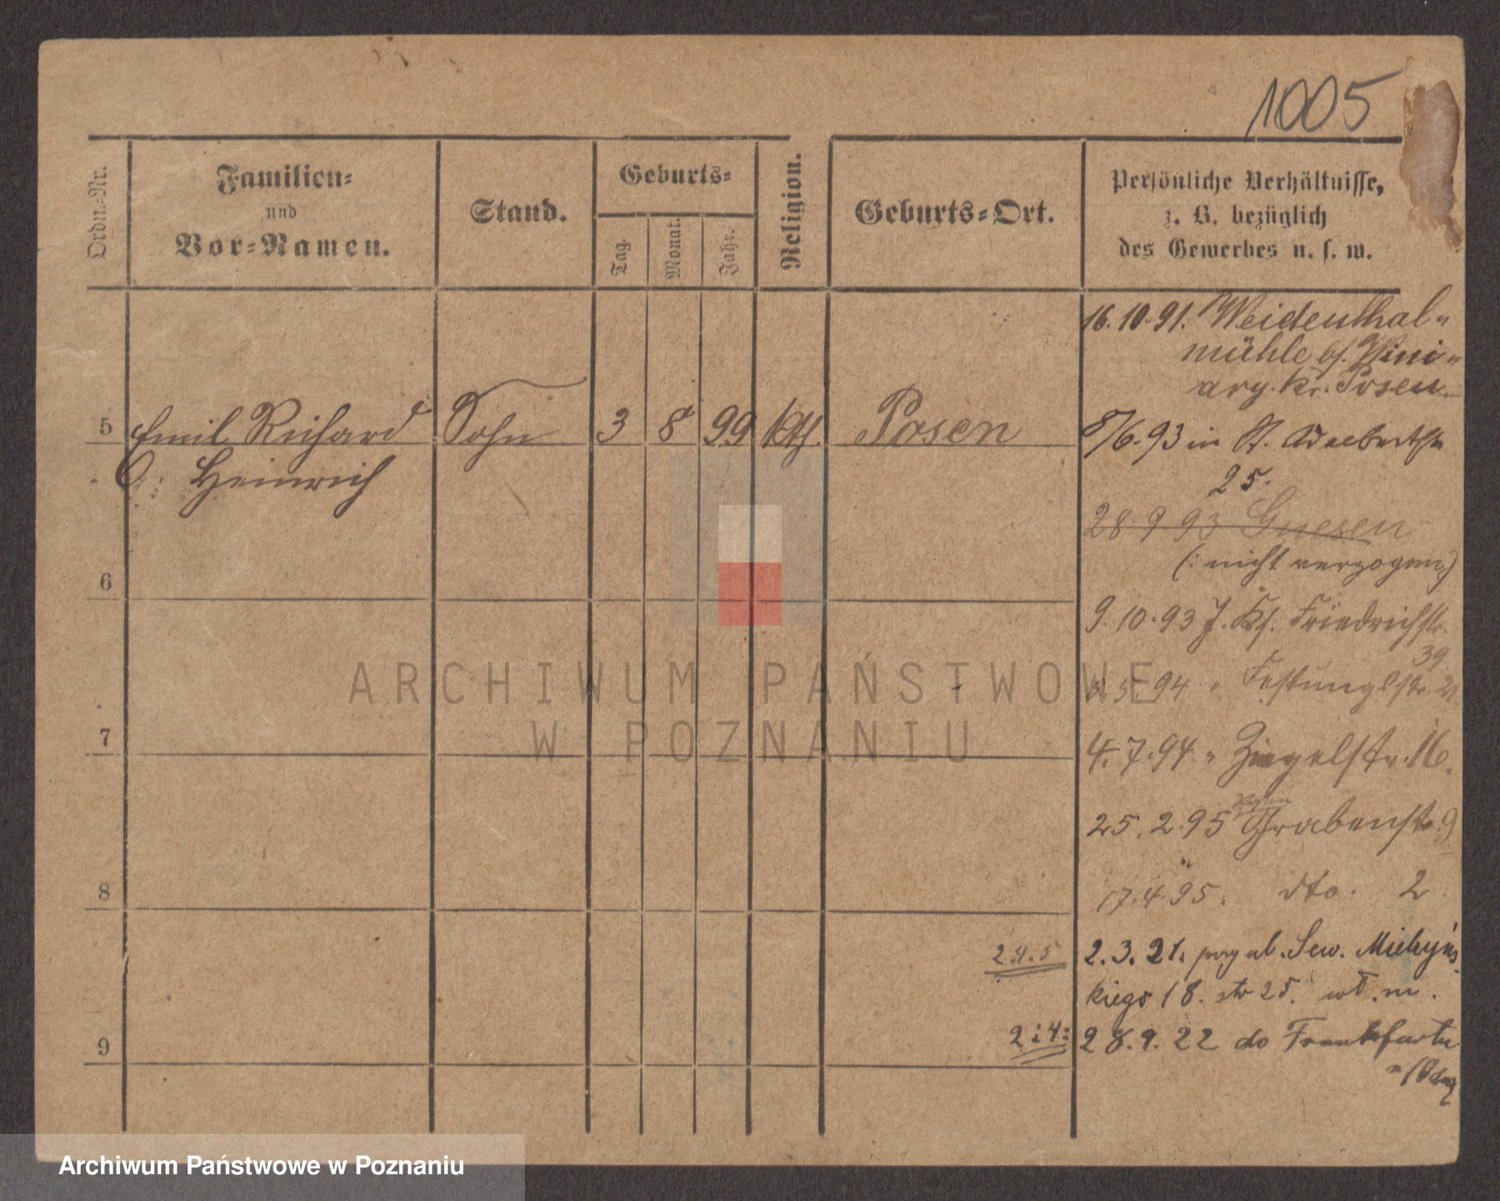 1005
Ordn.-Nr.
Familien-
und
Vor-Namen.
Stand.
Geburts-
Tag.
Monat.
Jahr.
Religion.
Geburts-Ort.
Persönliche Verhältnisse,
z. B. bezüglich
des Gewerbes u. s. w.
16.10.91. Weidenthal-
mühle b/. Wini-
ary. Kr. Posen
5 Emil Richard Sohn 3 8 99 kth. Posen
Heinrich
8/6.93 in St. Adalbertstr
25.
28 9 93 Gnesen
(: nicht verzogen:)
6
9.10.93 Friedrichstr.
39
94 " Festungsstr.
7
4.7.94 " Ziegelstr. 16.
25.2.95 Grabenstr. 9
17.4.95. dto. 2
8
2.4.5
2.3.21. Sew. Mielżyńs
kiego 18. str 25. wł. m.
9
2 i 4: 28.9.22 do Frankfurtu
n/Odrą
ARCHIWUM PAŃSTWOWE
W POZNANIU
Archiwum Państwowe w Poznaniu